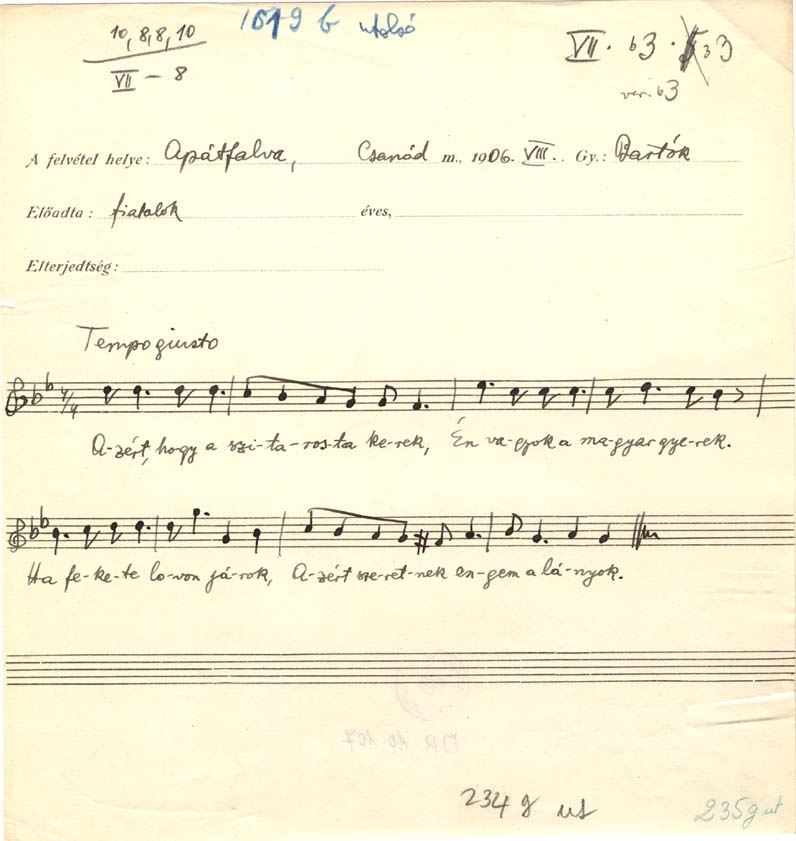 1619 b utolsó
10, 8, 8, 10
VII – 8
VII. b3 . 33
var. b3
A felvétel helye: Apátfalva, Csanád m., 1906. VIII. Gy.: Bartók
Előadta: fiatalok éves,
Elterjedtség:
Tempo giusto
4/4
A-zért, hogy a szi-ta-ros-ta ke-rek, Én va-gyok a ma-gyar gye-rek.
Ha fe-ke-te lo-von já-rok, A-zért sze-ret-nek en-gem a lá-nyok.
234 g ut
235 g ut